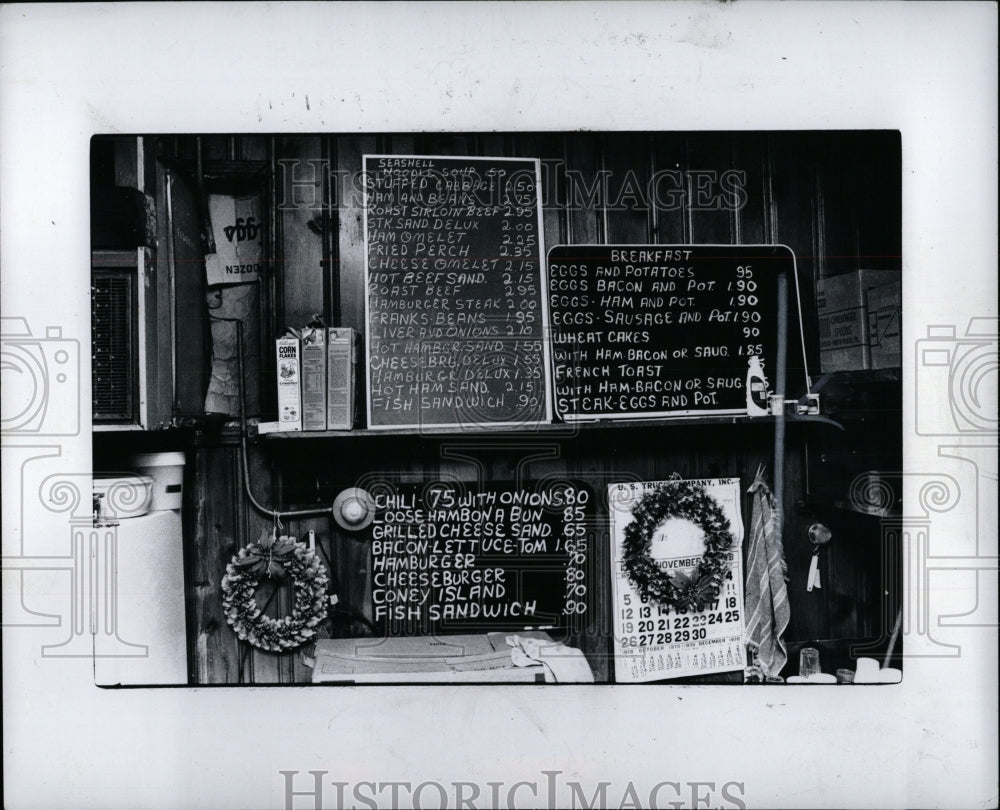 HISTORIC IMAGES
SEASHELL
NOODLE SOUP 50
STUFFED CABBAGE 2.50
HAM AND BEANS 2.75
ROAST SIRLOIN BEEF 2.95
STK SAND DELUX 2.00
HAM OMELET 2.25
FRIED PERCH 2.35
CHEESE OMELET 2.15
HOT BEEF SAND. 2.15
ROAST BEEF 2.95
HAMBURGER STEAK 2.00
FRANKS-BEANS 1.95
LIVER AND ONIONS 2.10
HOT HAMBER SAND. 1.55
CHEESBRG DELUX 1.55
HAMBURGE DELUX 1.35
HOT HAM SAND. 2.15
FISH SANDWICH .90
BREAKFAST
EGGS AND POTATOES 95
EGGS BACON AND POT 1.90
EGGS-HAM AND POT. 1.90
EGGS-SAUSAGE AND POT. 1.90
WHEAT CAKES 90
WITH HAM-BACON OR SAUG. 1.85
FRENCH TOAST
WITH HAM-BACON OR SAUG.
STEAK-EGGS AND POT.
Eggo
FROZEN
Kellogg's
CORN
FLAKES
CHILI-75 WITH ONIONS 80
LOOSE HAM BON A BUN 85
GRILLED CHEESE SAND. .65
BACON-LETTUCE-TOM 1.65
HAMBURGER 70
CHEESEBURGER 80
CONEY ISLAND 70
FISH SANDWICH .90
U. S. TRUCK COMPANY, INC.
NOVEMBER
4
5 11
12 18
19 20 21 22 23 24 25
26 27 28 29 30
1978 OCTOBER 1978
1978 DECEMBER 1978
HISTORIC IMAGES